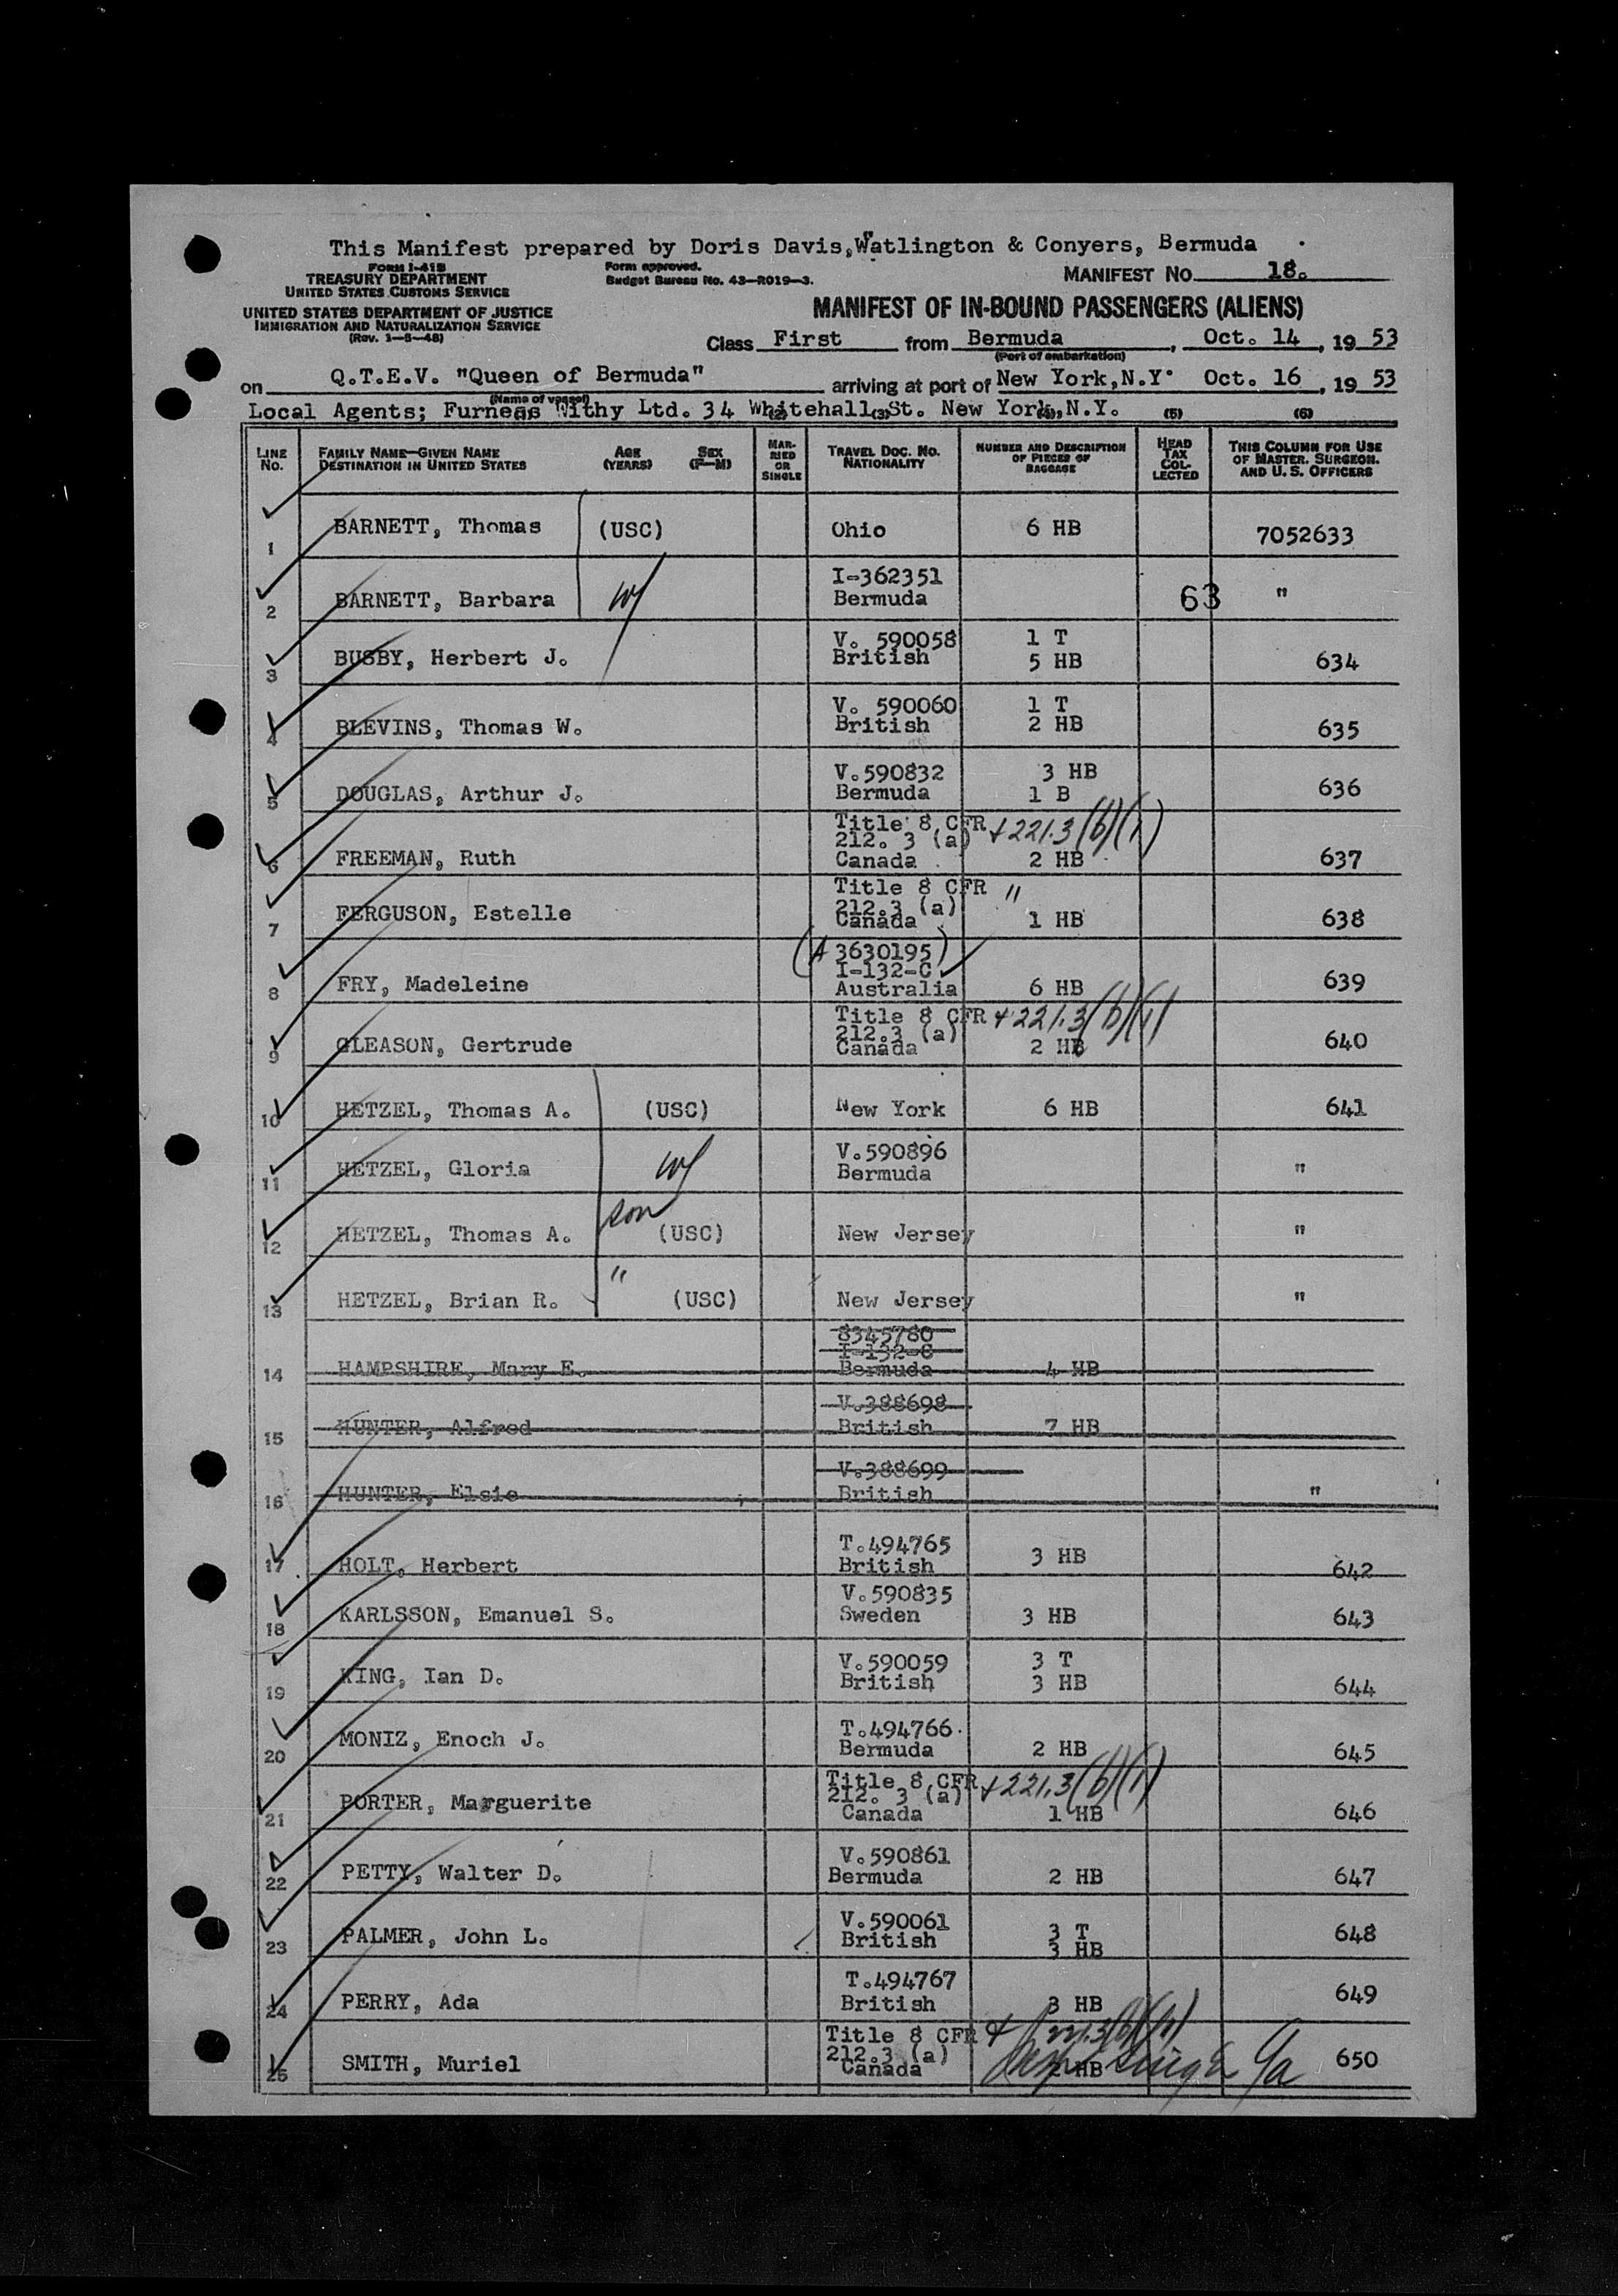 This Manifest prepared by Doris Davis, Watlington & Conyers, Bermuda
FORM I-41B
TREASURY DEPARTMENT
UNITED STATES CUSTOMS SERVICE
UNITED STATES DEPARTMENT OF JUSTICE
IMMIGRATION AND NATURALIZATION SERVICE
(Rev. 1-5-48)
Form approved.
Budget Bureau No. 43-R019-3.
MANIFEST NO. 18.
MANIFEST OF IN-BOUND PASSENGERS (ALIENS)
Class First from Bermuda, Oct. 14, 19 53
(Port of embarkation)
on Q.T.E.V. "Queen of Bermuda" arriving at port of New York, N.Y. Oct. 16, 19 53
(Name of vessel)
Local Agents; Furness Withy Ltd. 34 Whitehall St. New York, N.Y.
(3) (5) (6)
LINE NO. FAMILY NAME—GIVEN NAME DESTINATION IN UNITED STATES AGE (YEARS) SEX (F—M) MARRIED OR SINGLE TRAVEL DOC. NO. NATIONALITY NUMBER AND DESCRIPTION OF PIECES OF BAGGAGE HEAD TAX COLLECTED THIS COLUMN FOR USE OF MASTER, SURGEON, AND U. S. OFFICERS
1 BARNETT, Thomas (USC) Ohio 6 HB 7052633
2 BARNETT, Barbara W I-362351 Bermuda 63 "
3 BUSBY, Herbert J. V. 590058 British 1 T 5 HB 634
4 BLEVINS, Thomas W. V. 590060 British 1 T 2 HB 635
5 DOUGLAS, Arthur J. V.590832 Bermuda 3 HB 1 B 636
6 FREEMAN, Ruth Title 8 CFR 212. 3 (a) + 221.3(b)(1) Canada 2 HB 637
7 FERGUSON, Estelle Title 8 CFR 212.3 (a) " Canada 1 HB 638
8 FRY, Madeleine (A 3630195) I-132-C Australia 6 HB 639
9 GLEASON, Gertrude Title 8 CFR 212.3 (a) + 221.3(b)(1) Canada 2 HB 640
10 HETZEL, Thomas A. (USC) New York 6 HB 641
11 HETZEL, Gloria W V.590896 Bermuda "
12 HETZEL, Thomas A. son (USC) New Jersey "
13 HETZEL, Brian R. " (USC) New Jersey "
14 HAMPSHIRE, Mary E. 8345780 I-132-C Bermuda 4 HB
15 HUNTER, Alfred V.388698 British 7 HB
16 HUNTER, Elsie V.388699 British "
17 HOLT, Herbert T.494765 British 3 HB 642
18 KARLSSON, Emanuel S. V.590835 Sweden 3 HB 643
19 KING, Ian D. V.590059 British 3 T 3 HB 644
20 MONIZ, Enoch J. T.494766 Bermuda 2 HB 645
21 PORTER, Marguerite Title 8 CFR 212. 3 (a) + 221.3(b)(1) Canada 1 HB 646
22 PETTY, Walter D. V.590861 Bermuda 2 HB 647
23 PALMER, John L. V.590061 British 3 T 3 HB 648
24 PERRY, Ada T.494767 British 3 HB 649
25 SMITH, Muriel Title 8 CFR 212.3 (a) + 221.3(b)(1) Canada HB 650